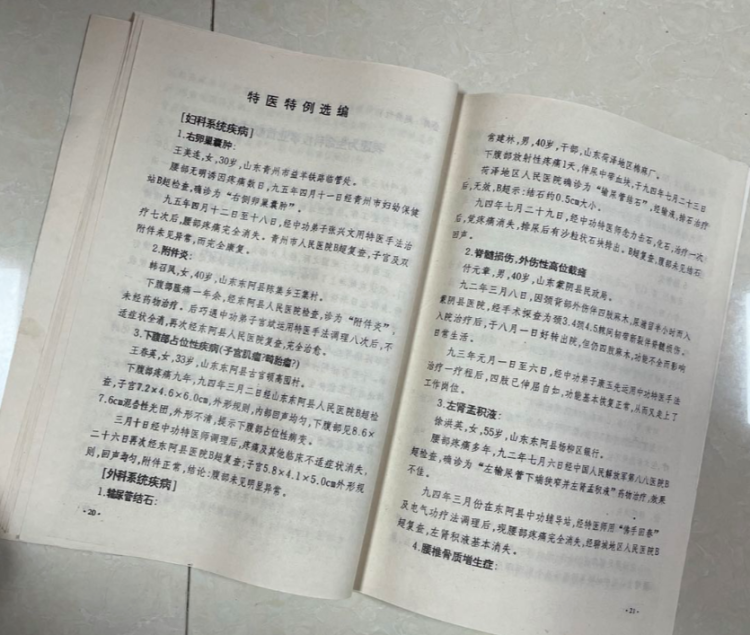 特医特例选编
[妇科系统疾病]
1.右卵巢囊肿：
王美莲，女，30岁，山东青州市益羊铁路临管处。
腰部无明诱因疼痛数日，九五年四月十一日经青州市妇幼保健
站B超检查，确诊为“右侧卵巢囊肿”。
九五年四月十二日至十八日，经中功弟子张兴文用特医手法治
疗七次后，腰部疼痛完全消失。青州市人民医院B超复查，子宫及双
附件未见异常，而完全康复。
2.附件炎：
韩召凤，女，40岁，山东东阿县陈集乡王集村。
下腹部胀痛一年余，经东阿县人民医院检查，诊为“附件炎”，
未经药物治疗。后巧遇中功弟子宫斌运用特医手法调理八次后，不
适症状全消，再次经东阿县人民医院复查，完全治愈。
3.下腹部占位性疾病(子宫肌瘤?畸胎瘤?)
王春英，女，33岁，山东东阿县古官顿高围村。
下腹部疼痛九年，九四年三月二日经山东东阿县人民医院B超检
查，子宫7.2×4.6×6.0cm，外形规则，内部回声均匀，下腹部见8.6×
7.6cm混合性光团，外形不清，提示下腹部占位性病变。
三月十日经中功特医师调理后，疼痛及其他临床不适症状消失，
二十六日再次经东阿县医院B超复查；子宫5.8×4.1×5.0cm外形规
则，回声均匀，附件正常，结论：腹部未见明显异常。
[外科系统疾病]
1.输尿管结石：
·20·
营建林，男，40岁，干部，山东荷泽地区棉麻厂。
下腹部放射性疼痛1天，伴尿中带血块，于九四年七月二十三日
荷泽地区人民医院确诊为“输尿管结石”，经输液，排石治疗
后，无效，B超示：结石约0.5cm大小。
九四年七月二十九日，经中功特医师意力击石，化石，治疗一次
后，觉疼痛消失，排尿后有沙粒状石块排出。B超复查，腹部未见结石
回声。
2.脊髓损伤、外伤性高位截瘫
付元章，男，40岁，山东蒙阴县民政局。
九二年三月八日，因颈背部外伤伴四肢麻木，尿潴留半小时而入
蒙阴县医院，经手术探查为颈3.4颈4.5棘间韧带断裂并脊髓损伤。
入院治疗后，于八月一日好转出院，但仍四肢麻木，功能不全而影响
日常生活。
九三年元月一日至六日，经中功弟子康玉先运用中功特医手法
治疗一疗程后，四肢已伸屈自如，功能基本恢复正常，从而又走上了
工作岗位。
3.左肾盂积液：
徐洪英，女，55岁，山东东阿县杨柳区银行。
腰部疼痛多年，九二年七月六日经中国人民解放军第八八医院B
超检查，确诊为“左输尿管下端狭窄并左肾盂积液”药物治疗，效果
不佳。
九四年三月份在东阿县中功辅导站，经特医师用“佛手回春”
及电气功疗法调理后，现腰部疼痛完全消失，经聊城地区人民医院B
超复查，左肾积液基本消失。
4.腰椎骨质增生症：
·21·